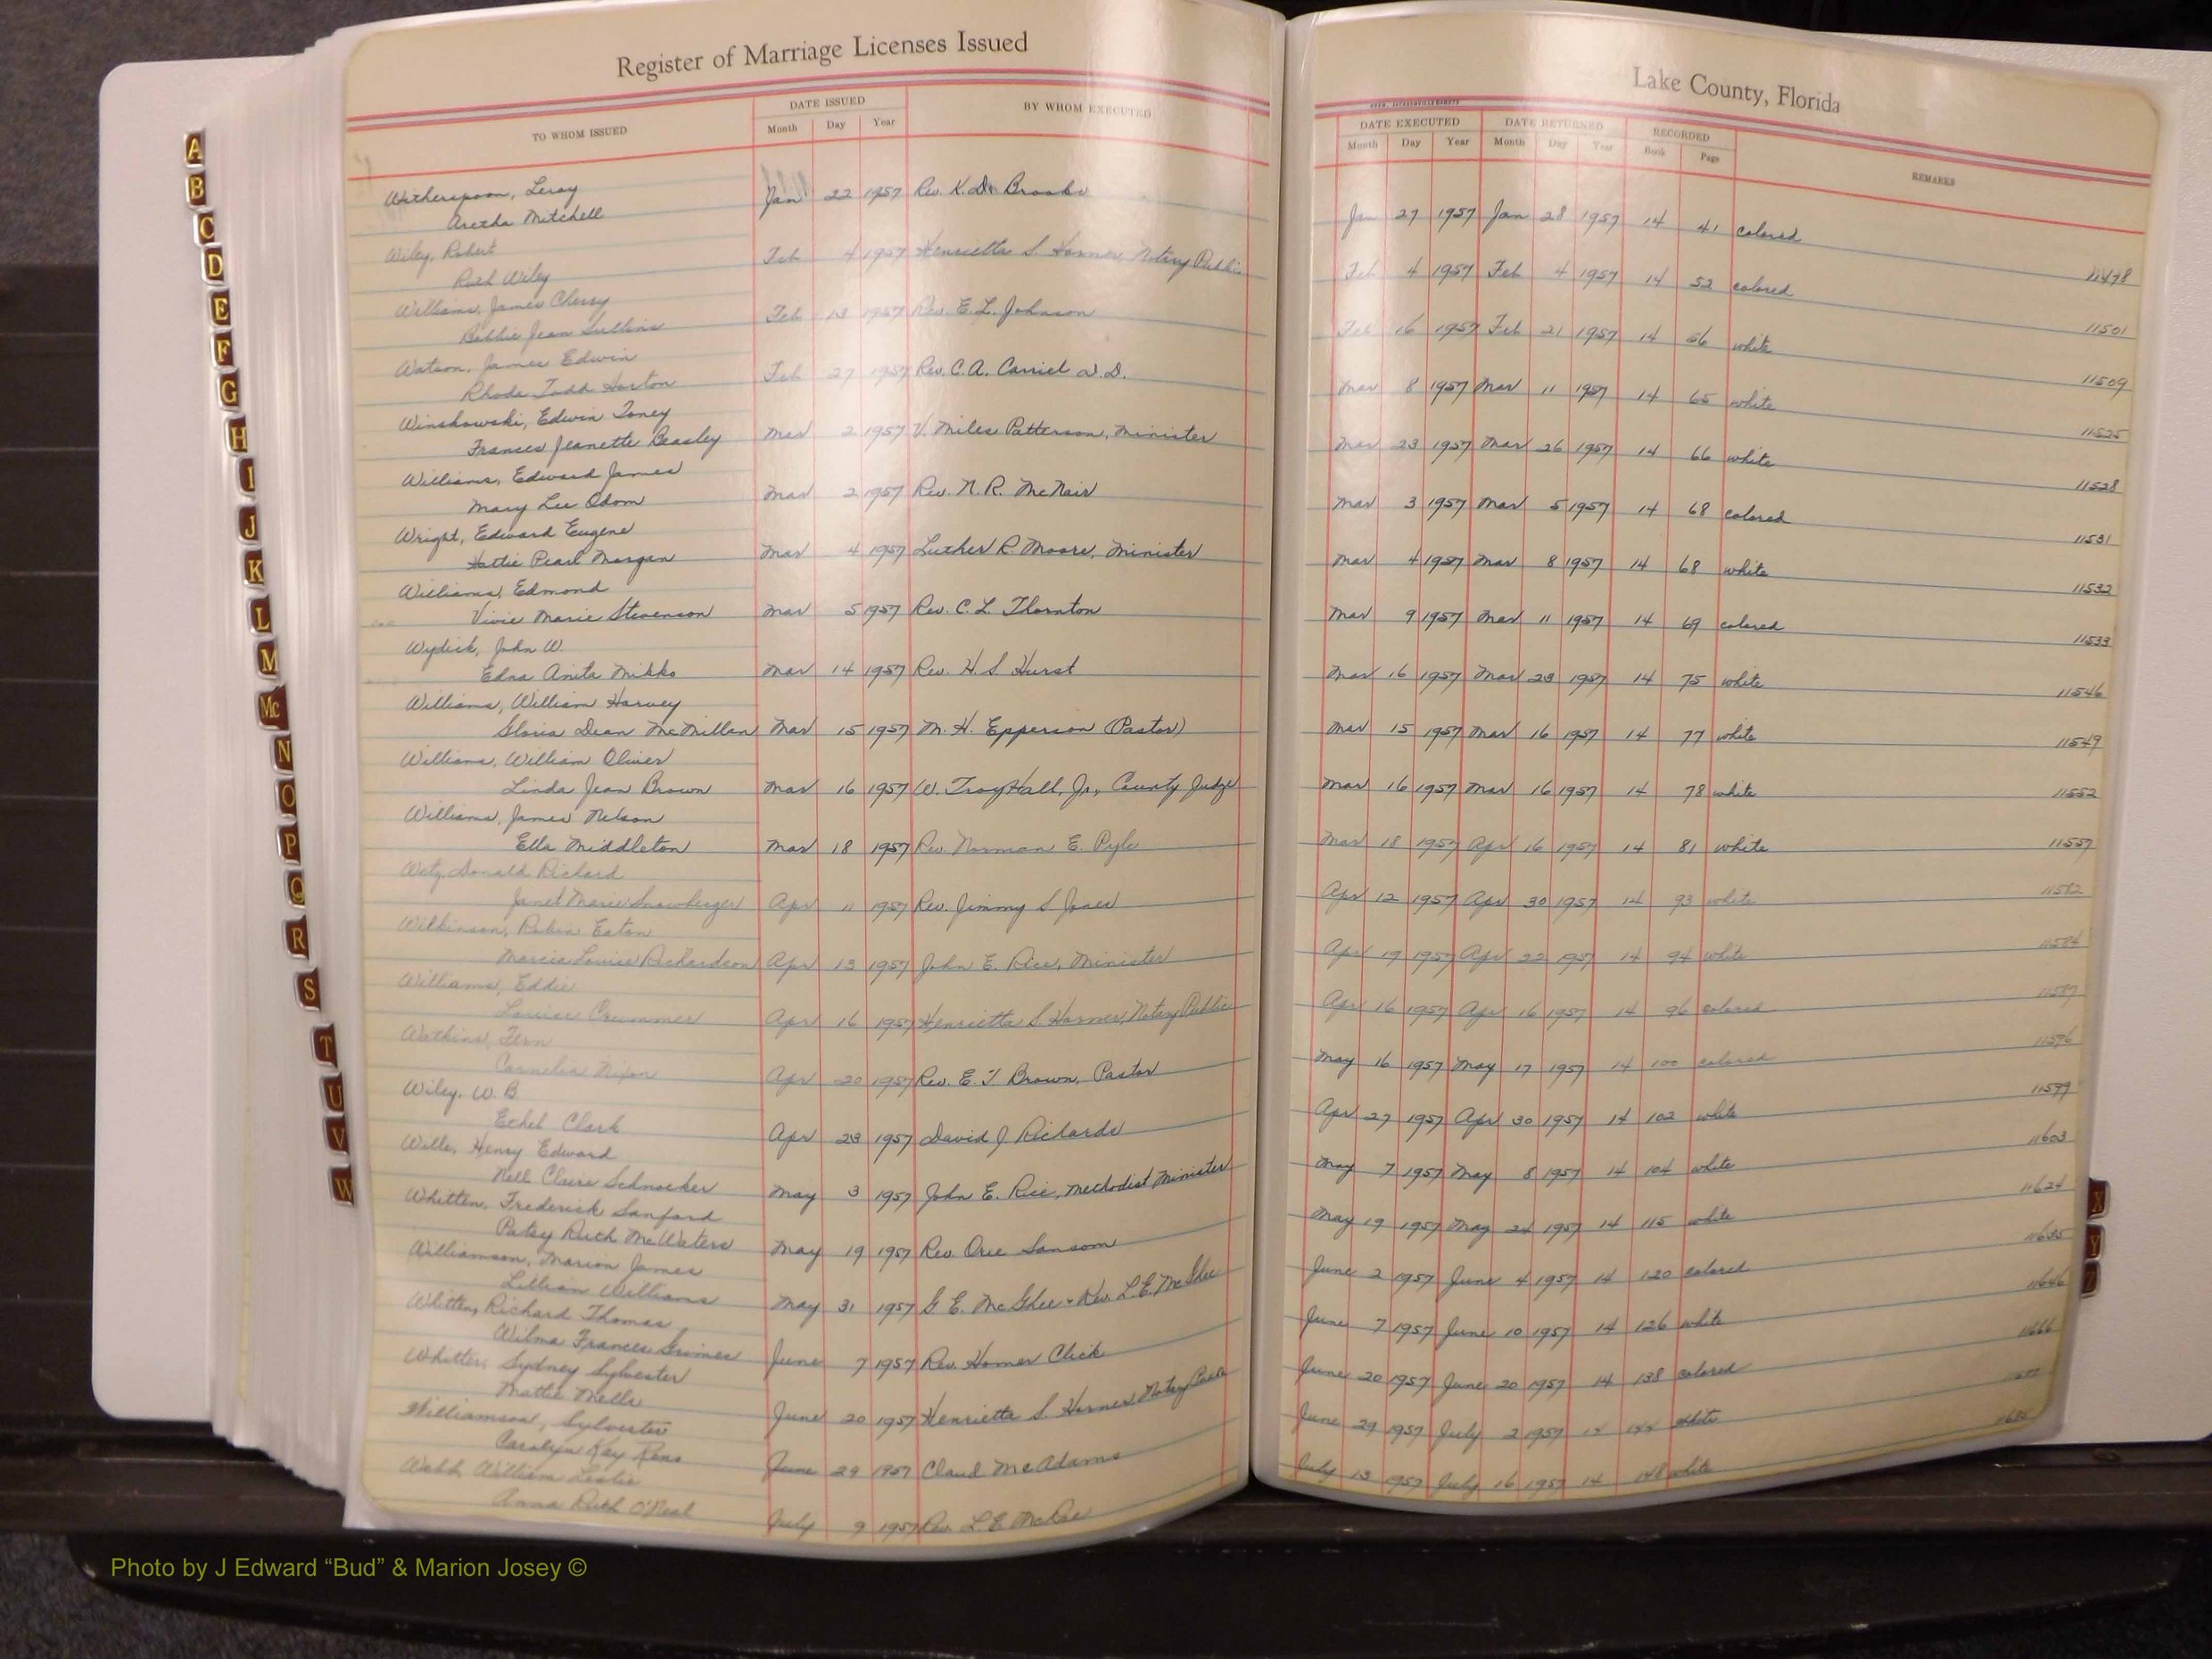 Register of Marriage Licenses Issued
TO WHOM ISSUED DATE ISSUED BY WHOM EXECUTED
Month Day Year
Witherspoon, Leroy
Aretha Mitchell Jan 22 1957 Rev. K. D. Brooks
Wiley, Robert
Ruth Wiley Feb 4 1957 Henrietta S. Horner, Notary Public
Williams, James Cherry
Bobbie Jean Sullins Feb 13 1957 Rev. E. L. Johnson
Watson, James Edwin
Rhoda Todd Horton Feb 27 1957 Rev. C. A. Carriel D.D.
Winskowski, Edwin Toney
Frances Jeanette Beasley Mar 2 1957 V. Miles Patterson, Minister
Williams, Edward James
Mary Lee Odom Mar 2 1957 Rev. N. R. McNair
Wright, Edward Eugene
Hattie Pearl Morgan Mar 4 1957 Luther R. Moore, Minister
Williams, Edmond
Vivie Marie Stevenson Mar 5 1957 Rev. C. L. Thornton
Wydick, John W.
Edna Anita Mikko Mar 14 1957 Rev. H. S. Hurst
Williams, William Harvey
Gloria Dean McMillan Mar 15 1957 M. H. Epperson (Pastor)
Williams, William Oliver
Linda Jean Brown Mar 16 1957 W. Troy Hall, Jr., County Judge
Williams, James Nelson
Ella Middleton Mar 18 1957 Rev. Norman E. Pyle
Wetz, Donald Richard
Janet Marie Snowberger Apr 11 1957 Rev. Jimmy S Jones
Wilkinson, Robin Eaton
Marcia Louise Richardson Apr 13 1957 John E. Rice, Minister
Williams, Eddie
Louise Crummer Apr 16 1957 Henrietta S. Horner, Notary Public
Watkins, Fern
Cornelia Nixon Apr 20 1957 Rev. E. T Brown, Pastor
Wiley, W. B.
Ethel Clark Apr 23 1957 David J Richards
Wills, Henry Edward
Nell Claire Schnoeker May 3 1957 John E. Rice, Methodist Minister
Whitten, Frederick Sanford
Patsy Ruth McWaters May 19 1957 Rev. Orie Sansom
Williamson, Marion James
Lillian Williams May 31 1957 G E. McGhee + Rev. L.E. McGhee
Whitten, Richard Thomas
Wilma Frances Grimes June 7 1957 Rev. Homer Click
Whitter, Sydney Sylvester
Mattie Mells June 20 1957 Henrietta S. Horner, Notary Public
Williamson, Sylvester
Carolyn Kay Reno June 29 1957 Claud McAdams
Webb, William Leslie
Anna Ruth O'Neal July 9 1957 Rev. L E McRae
Lake County, Florida
DATE EXECUTED DATE RETURNED RECORDED REMARKS
Month Day Year Month Day Year Book Page
Jan 27 1957 Jan 28 1957 14 41 colored 11478
Feb 4 1957 Feb 4 1957 14 52 colored 11501
Feb 16 1957 Feb 21 1957 14 56 white 11509
Mar 8 1957 Mar 11 1957 14 65 white 11525
Mar 23 1957 Mar 26 1957 14 66 white 11528
Mar 3 1957 Mar 5 1957 14 68 colored 11531
Mar 4 1957 Mar 8 1957 14 68 white 11532
Mar 9 1957 Mar 11 1957 14 69 colored 11533
Mar 16 1957 Mar 23 1957 14 75 white 11546
Mar 15 1957 Mar 16 1957 14 77 white 11549
Mar 16 1957 Mar 16 1957 14 78 white 11552
Mar 18 1957 Apr 16 1957 14 81 white 11557
Apr 12 1957 Apr 30 1957 14 93 white 11582
Apr 19 1957 Apr 22 1957 14 94 white 11584
Apr 16 1957 Apr 16 1957 14 96 colored 11587
May 16 1957 May 17 1957 14 100 colored 11596
Apr 27 1957 Apr 30 1957 14 102 white 11599
May 7 1957 May 8 1957 14 104 white 11603
May 19 1957 May 24 1957 14 115 white 11624
June 2 1957 June 4 1957 14 120 colored 11635
June 7 1957 June 10 1957 14 126 white 11646
June 20 1957 June 20 1957 14 138 colored 11666
June 29 1957 July 2 1957 14 144 white
July 13 1957 July 16 1957 14 148 white
A
B
C
D
E
F
G
H
I
J
K
L
M
Mc
N
O
P
Q
R
S
T
U
V
W
X
Y
Z
Photo by J Edward “Bud” & Marion Josey ©